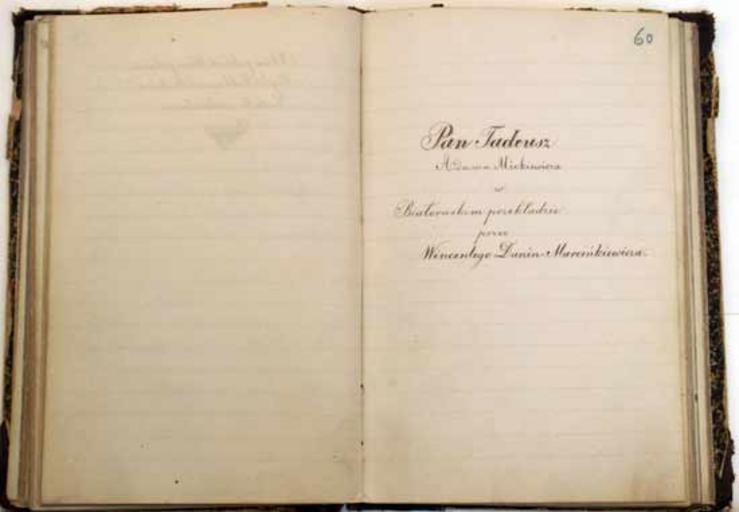 60
Pan Tadeusz
Adama Mickiewicza
w
Białoruskim przekładzie
przez
Wincentego Dunin-Marcinkiewicza.